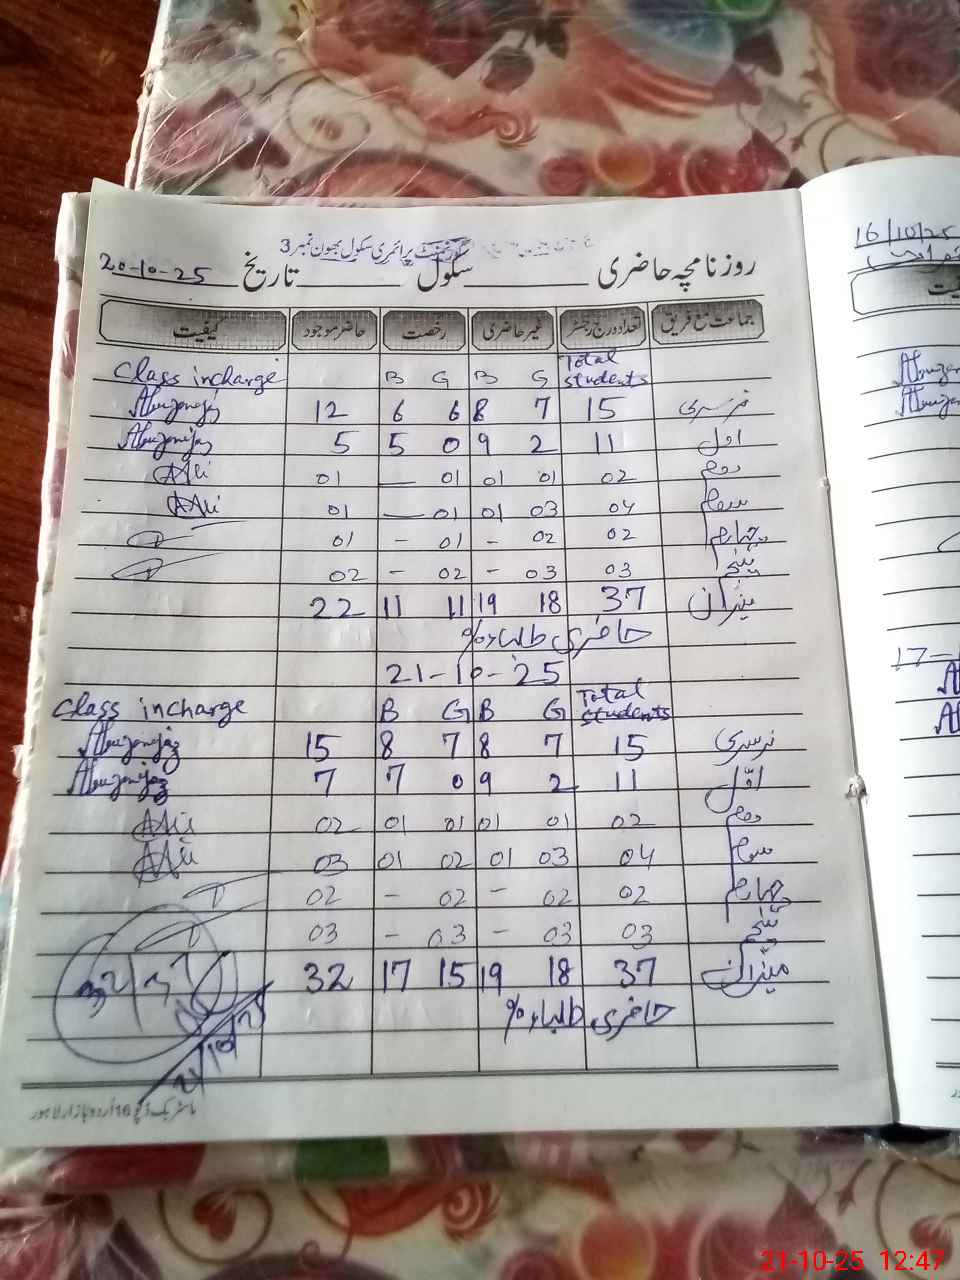 گورنمنٹ پرائمری سکول بھون نمبر 3
روزنامچہ حاضری ______ سکول ______ تاریخ 20-10-25
جماعت مع فریق تعداد درج رجسٹر غیر حاضری رخصت حاضر موجود کیفیت
Class incharge B G B G Total students
12 6 6 8 7 15 نرسری
5 5 0 9 2 11 اول
Ali 01 — 01 01 01 02 دوم
Ali 01 — 01 01 03 04 سوم
01 - 01 - 02 02 چہارم
02 - 02 - 03 03 پنجم
22 11 11 19 18 37 میزان
حاضری طلباء %
21-10-25
Class incharge B G B G Total students
15 8 7 8 7 15 نرسری
7 7 0 9 2 11 اوّل
Ali 02 01 01 01 01 02 دوم
Ali 03 01 02 01 03 04 سوم
02 - 02 - 02 02 چہارم
03 - 03 - 03 03 پنجم
32 17 15 19 18 37 میزان
حاضری طلباء %
32/37
21/10/25
16/10/25
17-
21-10-25 12:47